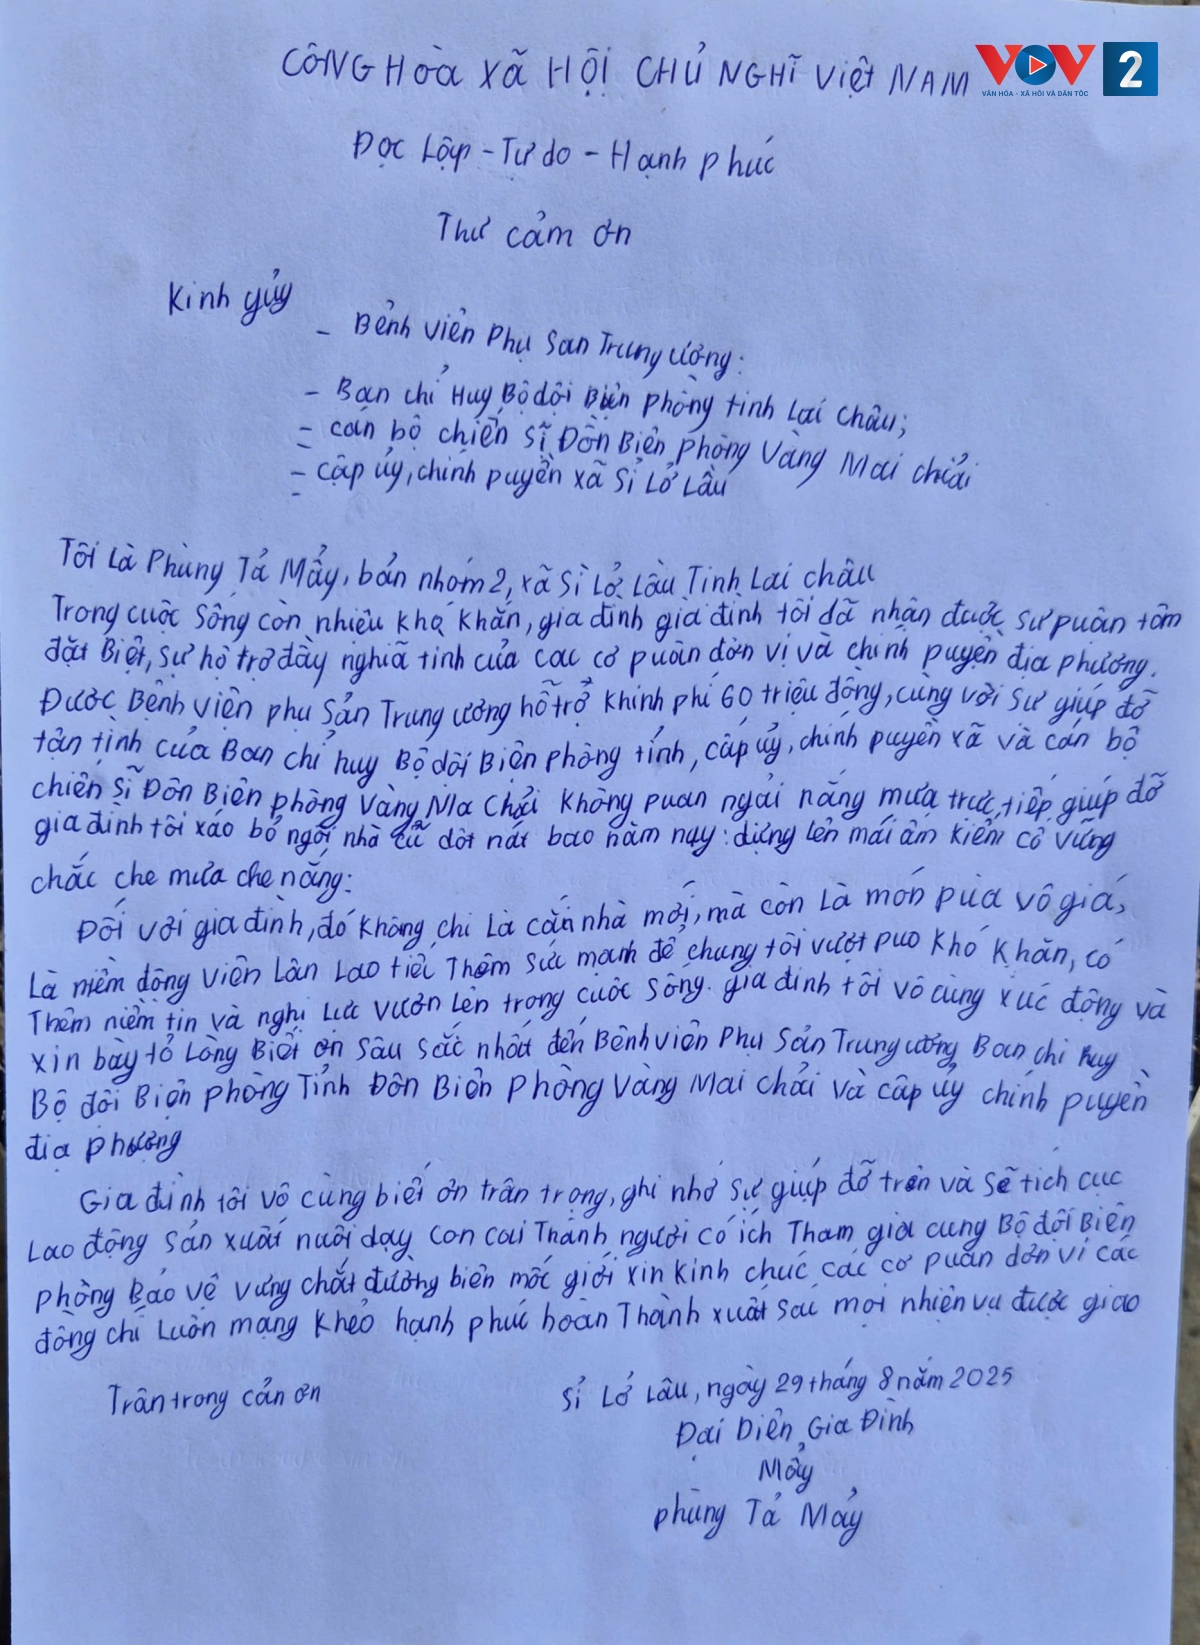 CÔNG HòA XÃ HỘI CHỦ NGHĨ Việt NAM
VOV 2
VĂN HÓA - XÃ HỘI VÀ DÂN TỘC
Đọc Lập - Tự do - Hạnh phúc
Thư cảm ơn
Kinh gửy
- Bẻnh viện Phụ San Trung ương:
- Ban chỉ Huy Bộ dội Biên phòng tỉnh Lai châu;
- cán bộ chiến sĩ Đồn Biên phòng Vàng Mai chải
- cập ủy, chính puyền xã Sỉ Lở Lầu
Tôi Là Phùng Tả Mẩy, bản nhóm 2, xã Sì Lở Lầu Tinh Lai châu
Trong cuộc sống còn nhiều khó khăn, gia đình gia đình tôi đã nhận được sự puân tâm
đặt Biệt, sự hộ trợ đầy nghiã tinh của cac cơ puân đơn vị và chính puyền địa phương.
Được Bệnh viện phụ Sản Trung ương hỗ trợ khinh phí 60 triệu đồng, cùng với sự giúp đỡ
tận tình của Ban chỉ huy Bộ dội Biên phòng tỉnh, cấp ủy, chính puyền xã và cán bộ
chiến sĩ Đồn Biên phòng Vàng Ma chải không puan ngải nắng mưa trực tiếp giúp đỡ
gia đình tôi xáo bỏ ngôi nhà cũ dột nát bao năm nay: dựng lên mái ấm kiểm cố vững
chắc che mưa che nắng:
Đối với gia đình, đó không chỉ Là căn nhà mới, mà còn Là món pùa vô giá,
Là niềm động viên Lân Lao tiếi Thêm sức mạnh để chung tôi vượt puo khó khăn, có
Thêm niềm tin và nghị Lực vươn Lên trong cuộc sống. gia đình tôi vô cùng xúc động và
xin bày tỏ Lòng Biết ơn sâu sắc nhất đến Bệnh viện Phụ Sản Trung ương Ban chỉ huy
Bộ đội Biên phòng Tỉnh Đồn Biên Phòng Vàng Mai chải và cấp ủy chính puyền
địa phương
Gia đình tôi vô cùng biết ơn trân trọng, ghi nhớ sự giúp đỡ trên và sẽ tích cực
Lao động sản xuất nuôi dạy con cai Thành người có ích Tham gia cung Bộ đội Biên
phòng Bảo vệ vưng chắt đường biên mốc giới xin kinh chúc các cơ puan đơn vị các
đồng chí Luôn mạng khẻo hạnh phúc hoàn Thành xuất sắc mọi nhiện vụ được giao
Trân trong cản ơn
Sỉ Lở Lầu, ngày 29 tháng 8 năm 2025
Đại Diện Gia Đình
Mẩy
phùng Tả Mẩy